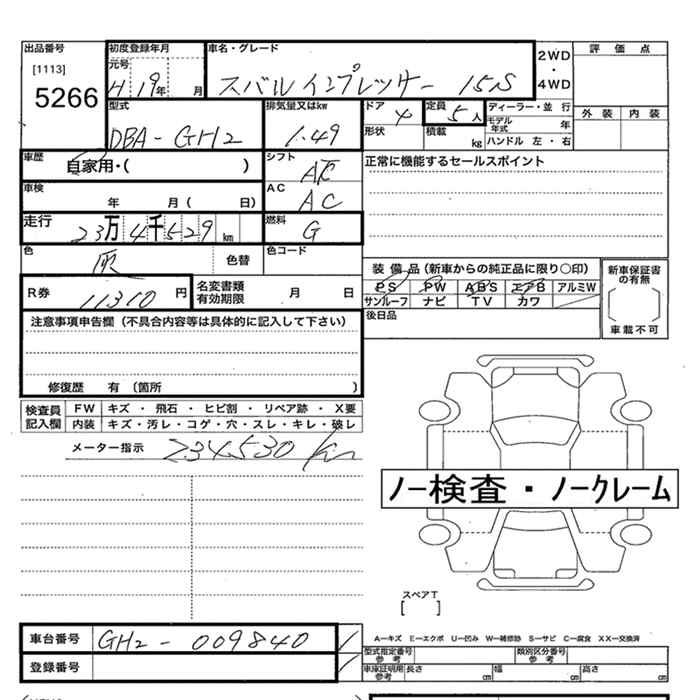 出品番号
[1113]
5266
初度登録年月
元号
H 19年 月
車名・グレード
スバル インプレッサー 15S
2WD
・
4WD
評価点
外装 内装
型式
DBA-GH2
排気量又はkw
1.49
ドア
4
形状
定員
5人
積載
kg
ディーラー・並行
モデル年式 年
ハンドル 左・右
車歴
自家用・( )
シフト
AT
正常に機能するセールスポイント
車検
年 月( 日)
AC
AC
走行
23万4千529km
燃料
G
色
灰
色替
色コード
装備品(新車からの純正品に限り○印)
PS PW ABS エアB アルミW
サンルーフ ナビ TV カワ
新車保証書の有無
車載不可
R券
11310円
名変書類有効期限
月 日
後日品
注意事項申告欄(不具合内容等は具体的に記入して下さい)
修復歴 有(箇所 )
検査員記入欄
FW キズ・飛石・ヒビ割・リペア跡・X要
内装 キズ・汚レ・コゲ・穴・スレ・キレ・破レ
メーター指示
234530 km
ノー検査・ノークレーム
スペアT
[ ]
A－キズ E－エクボ U－凹み W－補修跡 S－サビ C－腐食 XX－交換済
車台番号
GH2-009840
登録番号
型式指定番号参考
類別区分番号参考
車庫証明用参考
長さ cm
幅 cm
高さ cm